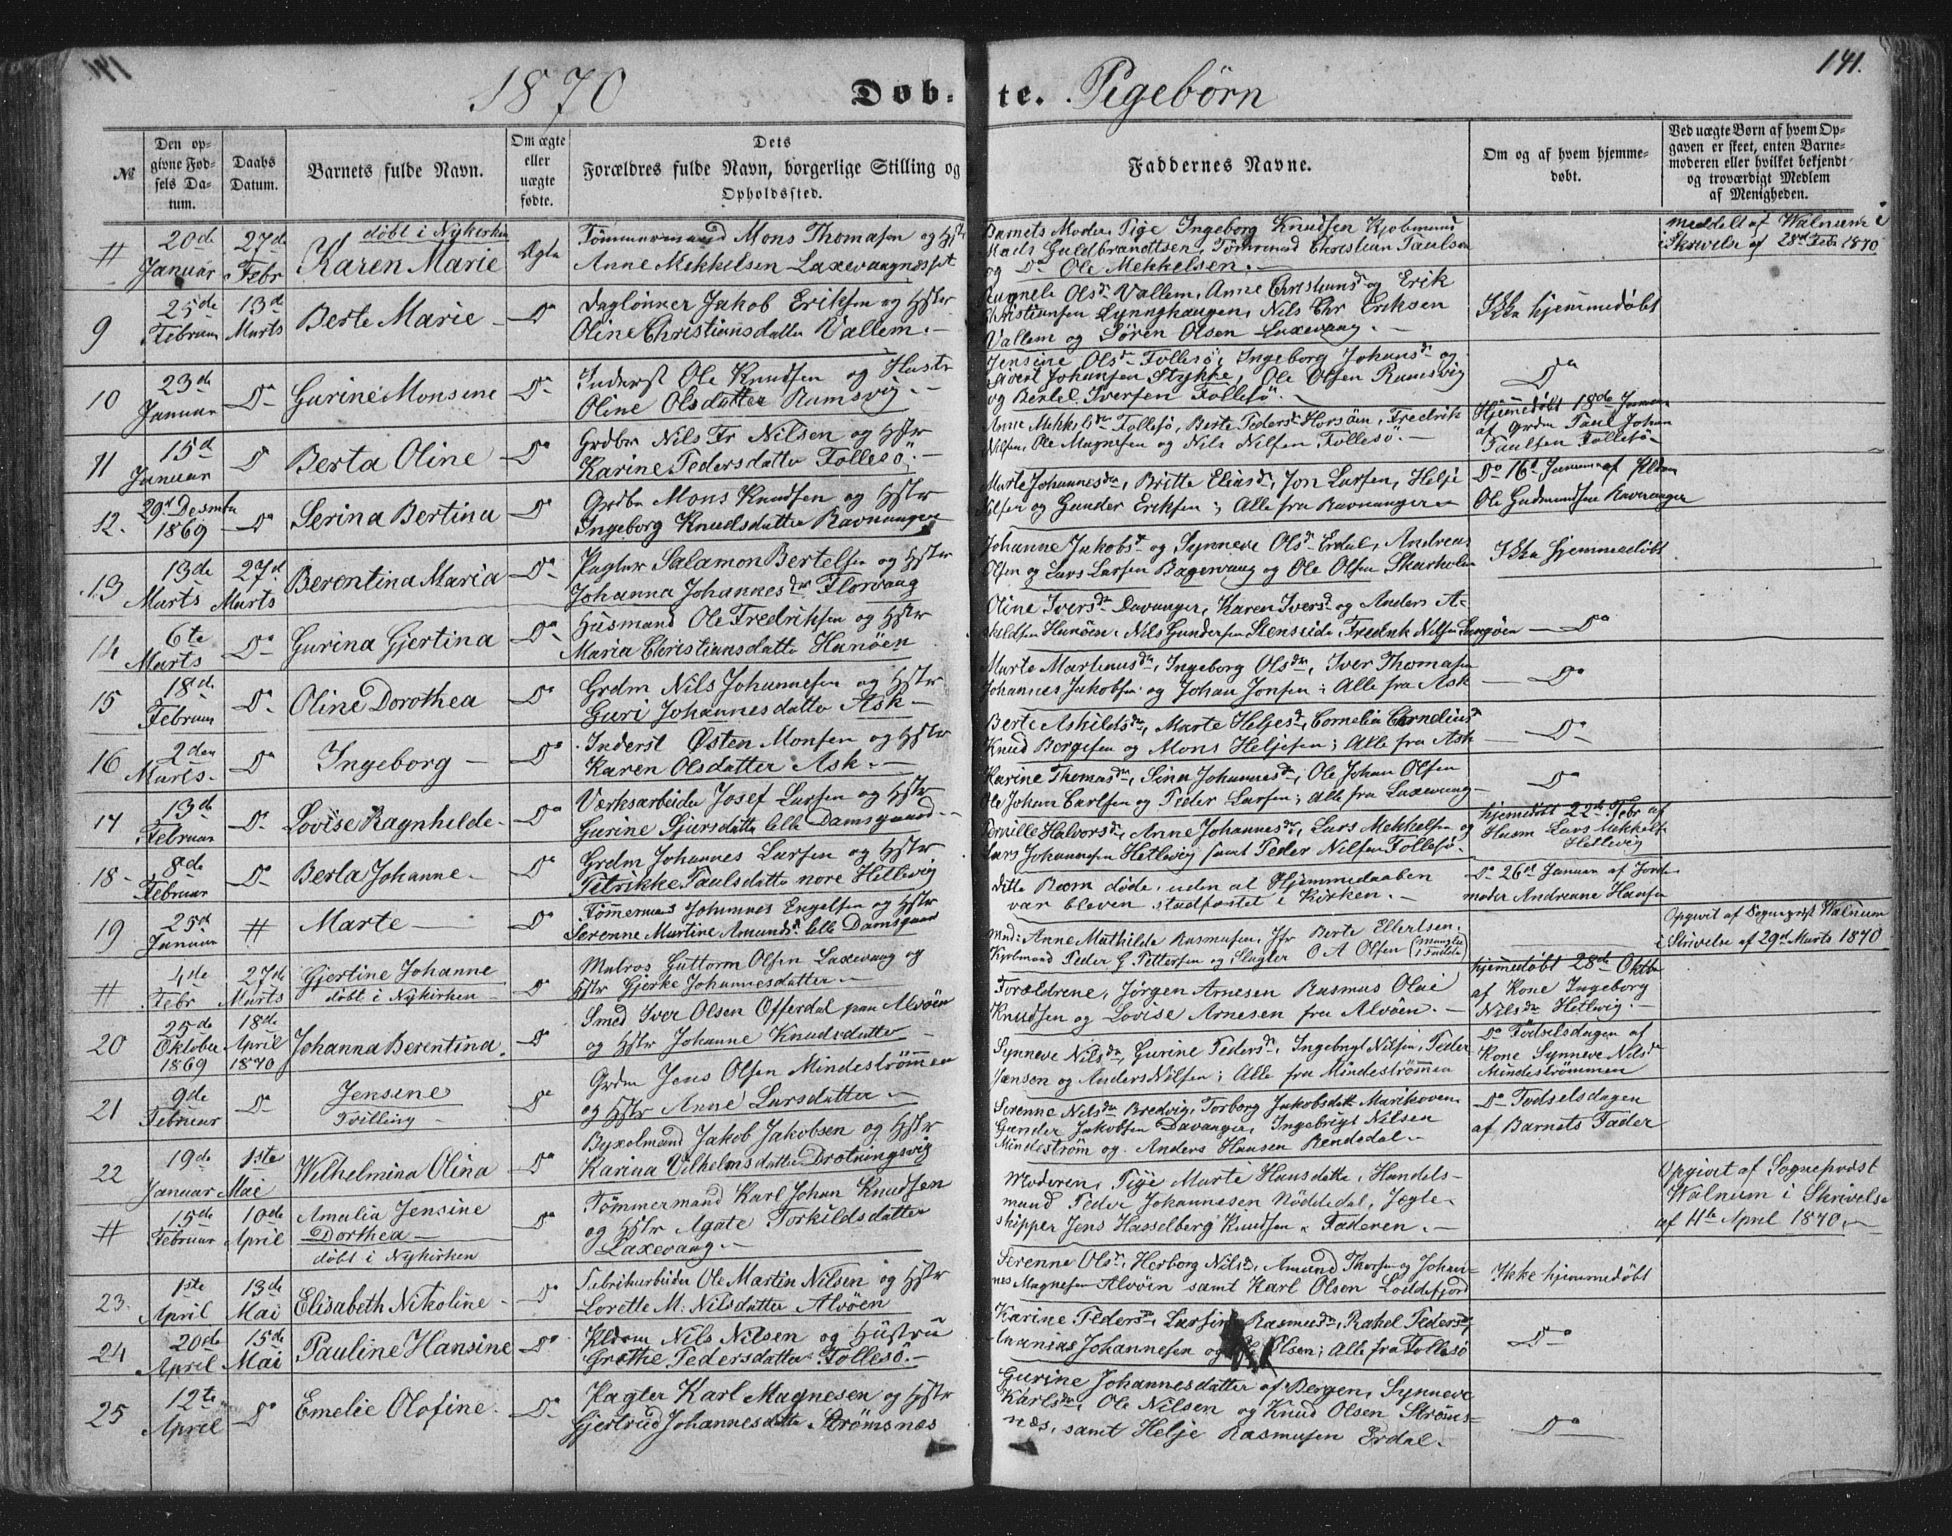 1870 Døb-te. Pigebørn 141.
№ | Den opgivne Fødsels Datum. | Daabs Datum. | Barnets fulde Navn. | Om ægte eller uægte fødte. | Dets Forældres fulde Navn, borgerlige Stilling og Opholdssted. | Faddernes Navne. | Om og af hvem hjemmedøbt. | Ved uægte Børn af hvem Opgaven er skeet, enten Barnemoderen eller hvilket bekjendt og troværdigt Medlem af Menigheden.
# 20de Januar 27de Febr
døbt i Nykirken
Karen Marie
Ægte
Tømmermand Mons Thomasen og Hstr
Anne Mekkelsen Laxevaagneset
Barnets Moder, Pige Ingeborg Knudsen Kjøbmand
Mads Guldbrandtsen, Tømrmnd Christian Paulsen
og Do Ole Mekkelsen.
meddelt af Walnum i
Skrivelse af 28de Febr 1870
9 25de Februar 13d Marts
Berte Marie
Do
Daglønner Jakob Eriksen og Hstr
Oline Christiansdatter Vallem.
Olsdr Vallem, Anne Christiansd og Erik
Christiansen Lynghaugen, Nils Chr Eriksen
Vallem og Sören Olsen Laxevaag.
Ikke hjemmedøbt
10 23de Januar Do
Gurine Monsine
Do
Inderst Ole Knudsen og Hustr
Oline Olsdatter Ramsvig.
Jensine Olsdr Follesö, Ingeborg Johansdr og
Johansen Stykke, Ole Olsen Ramsvig
og Bertel Iversen Follesö.
Do
11 15d Januar Do
Berta Oline
Do
Grdbr Nils Fr Nilsen og Hstr
Karine Pedersdatter Follesö.
Anne Mekkelsdr Follesö, Berte Pedersdr Horsöen, Fredrik
Nilsen, Ole Magnesen og Nils Nilsen Follesö.
Hjemmedöbt 18de Januar
af Grdm Paul Johan
Paulsen Follesö
12. 29d Desember 1869 Do
Serina Bertina
Do
Grdbr Mons Knudsen og Hstr
Ingeborg Knudsdatter Ravnanger
Marte Johannesdr, Britte Eliasd, Jon Larsen, Helje
Olsen og Gunder Eriksen; Alle fra Ravnanger
Do 16d Januar af Kldm
Ole Gudmundsen Ravnanger
13 13de Marts 27d Marts
Berentina Maria
Do
Pagter Salamon Bertelsen og Hstr
Johanna Johannesdr Florvaag
Johanne Jakobsd og Synneve Olsdr Erdal, Andreas
Olsen og Lars Larsen Bagevaag og Ole Olsen Skarholm
Ikke hjemmedøbt
14 6te Marts Do
Gurina Gjertina
Do
Husmand Ole Fredriksen og Hstr
Maria Christiansdatter Hanöen
Oline Iversdr Davanger, Karen Iversd og Anders A-
skildsen Hanöen, Nils Gundersen Stenseide, Fredrik Nilsen Langöen
Do
15 18de Februar Do
Oline Dorothea
Do
Grdm Nils Johannesen og Hstr
Guri Johannesdatter Ask
Marte Markusdr, Ingeborg Olsdr, Iver Thomasen
Johannes Jakobsen og Johan Jonsen; Alle fra Ask
Do
16 2den Marts Do
Ingeborg
Do
Inderst Østen Monsen og Hstr
Karen Olsdatter Ask.
Berte Askildsdr, Marte Heljesdr, Cornelia Corneliusd
Knud Børgesen og Mons Heljesen; Alle fra Ask
Do
17 13d Februar Do
Lovise Ragnhilde
Do
Værksarbeider Josef Larsen og Hstr
Gurine Sjursdatter lille Damsgaard
Karine Thomasdr, Sina Johannesdr, Ole Johan Olsen
Ole Johan Carlsen og Peder Larsen; Alle fra Laxevaag
Do
18 8de Februar Do
Berta Johanne
Do
Grdm Johannes Larsen og Hstr
Petrikke Paulsdatter nore Hetlevig
Pernille Halvorsdr, Anne Johannesdr, Lars Mekkelsen og
Lars Johannesen Hetlevig samt Peder Nilsen Follesö.
hjemedøbt 22de Febr af
Husm Lars Mekkels
Hetlevig
19 25d Januar #
Marte
Do
Tømmermd Johannes Engelsen og Hstr
Serenne Martine Amundsd lille Damsgaard
Dette Barn døde, uden at Hjemmedaaben
var bleven stadfæstet i Kirken.
Do 26d Januar af Jorde
moder Andreane Hansen
# 4de Febr 27de Marts
Gjertine Johanne
døbt i Nykirken
Do
Matros Guttorm Olsen Laxevaag og
Hstr Gjerke Johannesdatter
Mad: Anne Mathilde Rasmusen, Jfr Berte Ellertsen,
Kjøbmand Peder G. Pettersen og Slagter O A Olsen (mangler 1 Fadder)
Opgivet af Sogneprest Walnum
i Skrivelse af 29d Marts 1870
20 25de Oktober 1869 18de April 1870
Johanna Berentina.
Do
Smed Iver Olsen Offerdal paa Alvöen
og Hstr Johanne Knudsdatter
Forældrene, Jörgen Arnesen Rasmus Olai
Knudsen og Lovise Arnesen fra Alvöen.
hjemmedöbt 28de Oktbr
af Kone Ingeborg
Nilsdr Hetlevig.
21 9de Februar Do
Jensine
Tvilling
Do
Grdm Jens Olsen Mindeströmmen
og Hstr Anne Larsdatter
Synneve Nilsdr, Gurine Pedersdr, Ingebrigt Nilsen, Peder
Jansen og Anders Nilsen; Alle fra Mindeströmmen
Do Födselsdagen af
Kone Synneve Nilsdr
Mindeströmmen
22 19de Januar 1ste Mai
Wilhelmina Olina
Do
Byxelmand Jakob Jakobsen og Hstr
Karina Vilhelmsdatter Drotningsvig
Serenne Nilsdr Bredvig, Torborg Jakobsdatt Marikoven
Gunder Jakobsen Davanger, Ingebrigt Nilsen
Mindeström og Anders Hansen Rendedal
Do Födselsdagen
af Barnets Fader
# 15de Februar 10de April
Amalia Jensine
Dorthea
döbt i Nykirken
Do
Tömmermand Karl Johan Knudsen
og Hstr Agate Torkildsdatter
Laxevaag.
Moderen, Pige Marte Hansdatter, Handels-
mand Peder Johannesen Nöddedal, Jægte-
skipper Jens Hasselberg Knudsen & Faderen.
Opgivet af Sogneprest
Walnum i Skrivelse
af 11te April 1870.
23. 1ste April 13de Mai
Elisabeth Nikoline
Do
Fabrikarbeider Ole Martin Nilsen og Hstr
Lorette M: Nilsdatter Alvöen
Serenne Olsdr, Herborg Nilsdr, Amund Thorsen og Johan-
nes Magnesen Alvöen samt Karl Olsen Loddefjord
Ikke hjemmedöbt
24 20de April 15de Mai
Pauline Hansine
Do
Kldm Nils Nilsen og Hustru
Grethe Pedersdatter Follesö.
Karine Pedersdr, Larsine Rasmusdr, Rakel Pedersdr,
Ananias Johannesen og Olsen; Alle fra Follesö
Do
25 12te April Do
Emelie Olofine.
Do
Pagter Karl Magnesen og Hstr
Gjertrud Johannesdatter Strömsnes
Gurine Johannesdatter af Bergen, Synneve
Karlsdr, Ole Nilsen og Knud Olsen Ströms-
næs, samt Helje Rasmusen Erdal.
Do